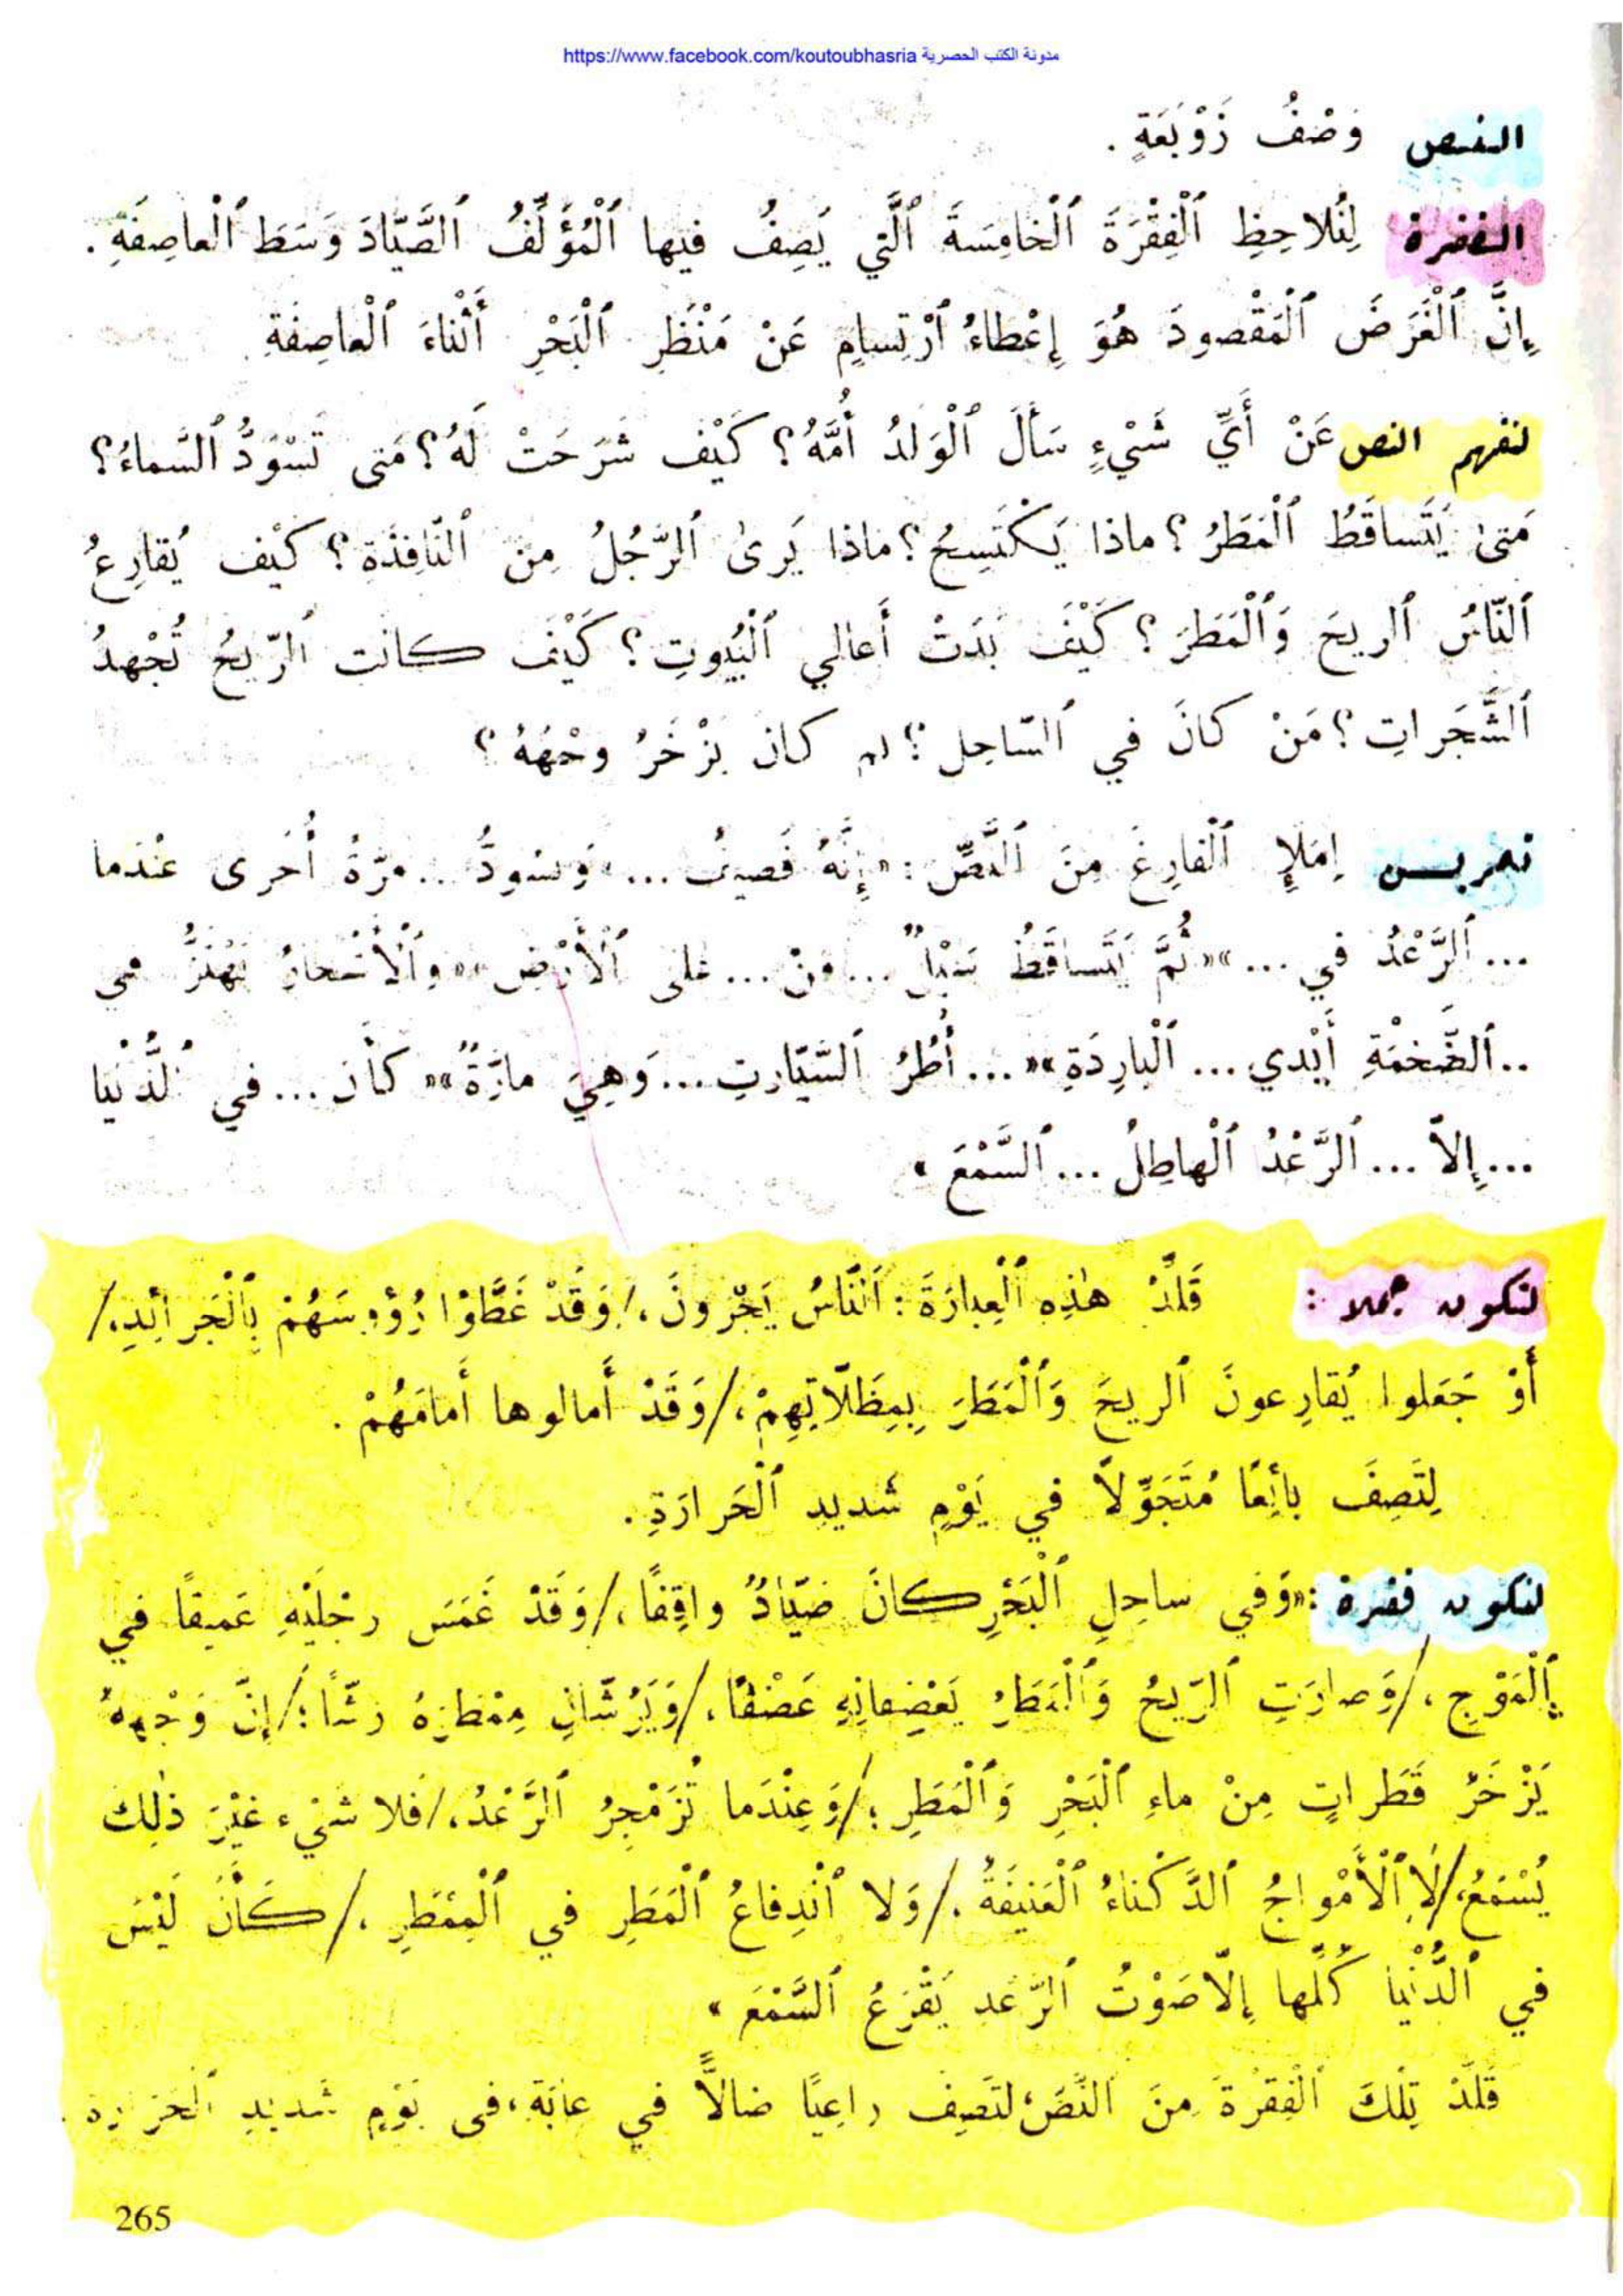 مدونة الكتب الحصرية https://www.facebook.com/koutoubhasria
النص وَصْفُ زَوْبَعَةٍ .
الفقرة لِنُلاحِظِ ٱلْفِقْرَةَ ٱلْخامِسَةَ ٱلَّتي يَصِفُ فيها ٱلْمُؤَلِّفُ ٱلصَّيّادَ وَسَطَ ٱلْعاصِفَةِ .
إِنَّ ٱلْغَرَضَ ٱلْمَقْصودَ هُوَ إِعْطاءُ ٱرْتِسامٍ عَنْ مَنْظَرِ ٱلْبَحْرِ أَثْناءَ ٱلْعاصِفَةِ
لنفهم النص عَنْ أَيِّ شَيْءٍ سَأَلَ ٱلْوَلَدُ أُمَّهُ؟ كَيْف شَرَحَتْ لَهُ؟ مَتى تَسْوَدُّ ٱلسَّماءُ؟
مَتىٰ يَتَساقَطُ ٱلْمَطَرُ؟ ماذا يَكْتَسِحُ؟ ماذا يَرىٰ ٱلرَّجُلُ مِنَ ٱلنّافِذَةِ؟ كَيْف يُقارِعُ
ٱلنّاسُ ٱلريحَ وَٱلْمَطَرَ؟ كَيْفَ بَدَتْ أَعالي ٱلْبُيوتِ؟ كَيْف كانت ٱلرّيحُ تُجْهِدُ
ٱلشَّجَراتِ؟ مَنْ كانَ في ٱلسّاحِل؟ لم كان يَزْخَرُ وجْهُهُ؟
تمريـن إِمْلإِ ٱلْفارِغَ مِنَ ٱلنَّصِّ : «إِنَّهُ قَصيفُ ... وَتسْودُّ ... مرّةً أُخرى عنْدَما
... ٱلرَّعْدُ في ... »«ثُمَّ يَتَساقَطُ سَيْلٌ ... مِنْ ... عَلى ٱلْأَرْضِ »«وٱلْأَشْجارُ تَهْتَزُّ في
.. ٱلضَّخْمَةِ أَيْدي ... ٱلْبارِدَةِ »« ... أُطُرُ ٱلسَّيّارتِ ... وَهِيَ مارَّةٌ »« كأَن ... في ٱلدُّنْيا
... إِلاّ ... ٱلرَّعْدُ ٱلْهاطِلُ ... ٱلسَّمْعَ »
لنكون جملا : قَلِّدْ هٰذِهِ ٱلْعِبارَةَ : ٱلنّاسُ يَجْرونَ ،/ وَقَدْ غَطَّوْا رُؤوسَهُمْ بِٱلْجَرائِدِ،/
أَوْ جَعَلوا يُقارِعونَ ٱلريحَ وَٱلْمَطَرَ بِمِظَلّاتِهِمْ ،/ وَقَدْ أَمالوها أَمامَهُمْ .
لِتَصِفَ بائِعًا مُتَجَوِّلاً في يَوْمٍ شديدِ ٱلْحَرارَةِ .
لنكون فقرة : «وَفي ساحِلِ ٱلْبَحْرِ كانَ صَيّادٌ واقِفًا ،/ وَقَدْ غَمَسَ رِجْلَيْهِ عَميقاً في
ٱلْمَوْجِ ،/ وَصارَتِ ٱلرّيحُ وَٱلْمَطَرُ يَعْصِفانِهِ عَصْفًا ،/ وَيَرُشّانِ مِمْطَرَهُ رَشّاً ؛/ إِنَّ وَجْهَهُ
يَزْخَرُ قَطَراتٍ مِنْ ماءِ ٱلْبَحْرِ وَٱلْمَطَرِ ؛/ وَعِنْدَما تُزَمْجِرُ ٱلرَّعْدُ ،/ فَلا شَيْءَ غَيْرَ ذٰلِكَ
يُسْمَعُ،/ لا ٱلْأَمْواجُ ٱلدَّكْناءُ ٱلْعَنيفَةُ ،/ وَلا ٱنْدِفاعُ ٱلْمَطَرِ في ٱلْمِمْطَرِ ،/ كَأَنْ لَيْسَ
في ٱلدُّنْيا كُلِّها إِلّا صَوْتُ ٱلرَّعْدِ يَقْرَعُ ٱلسَّمْعَ »
قَلِّدْ تِلْكَ ٱلْفِقْرَةَ مِنَ ٱلنَّصِّ، لتَصِف راعِيًا ضالاًّ في غابَةٍ، في يَوْمٍ شَديدِ
265